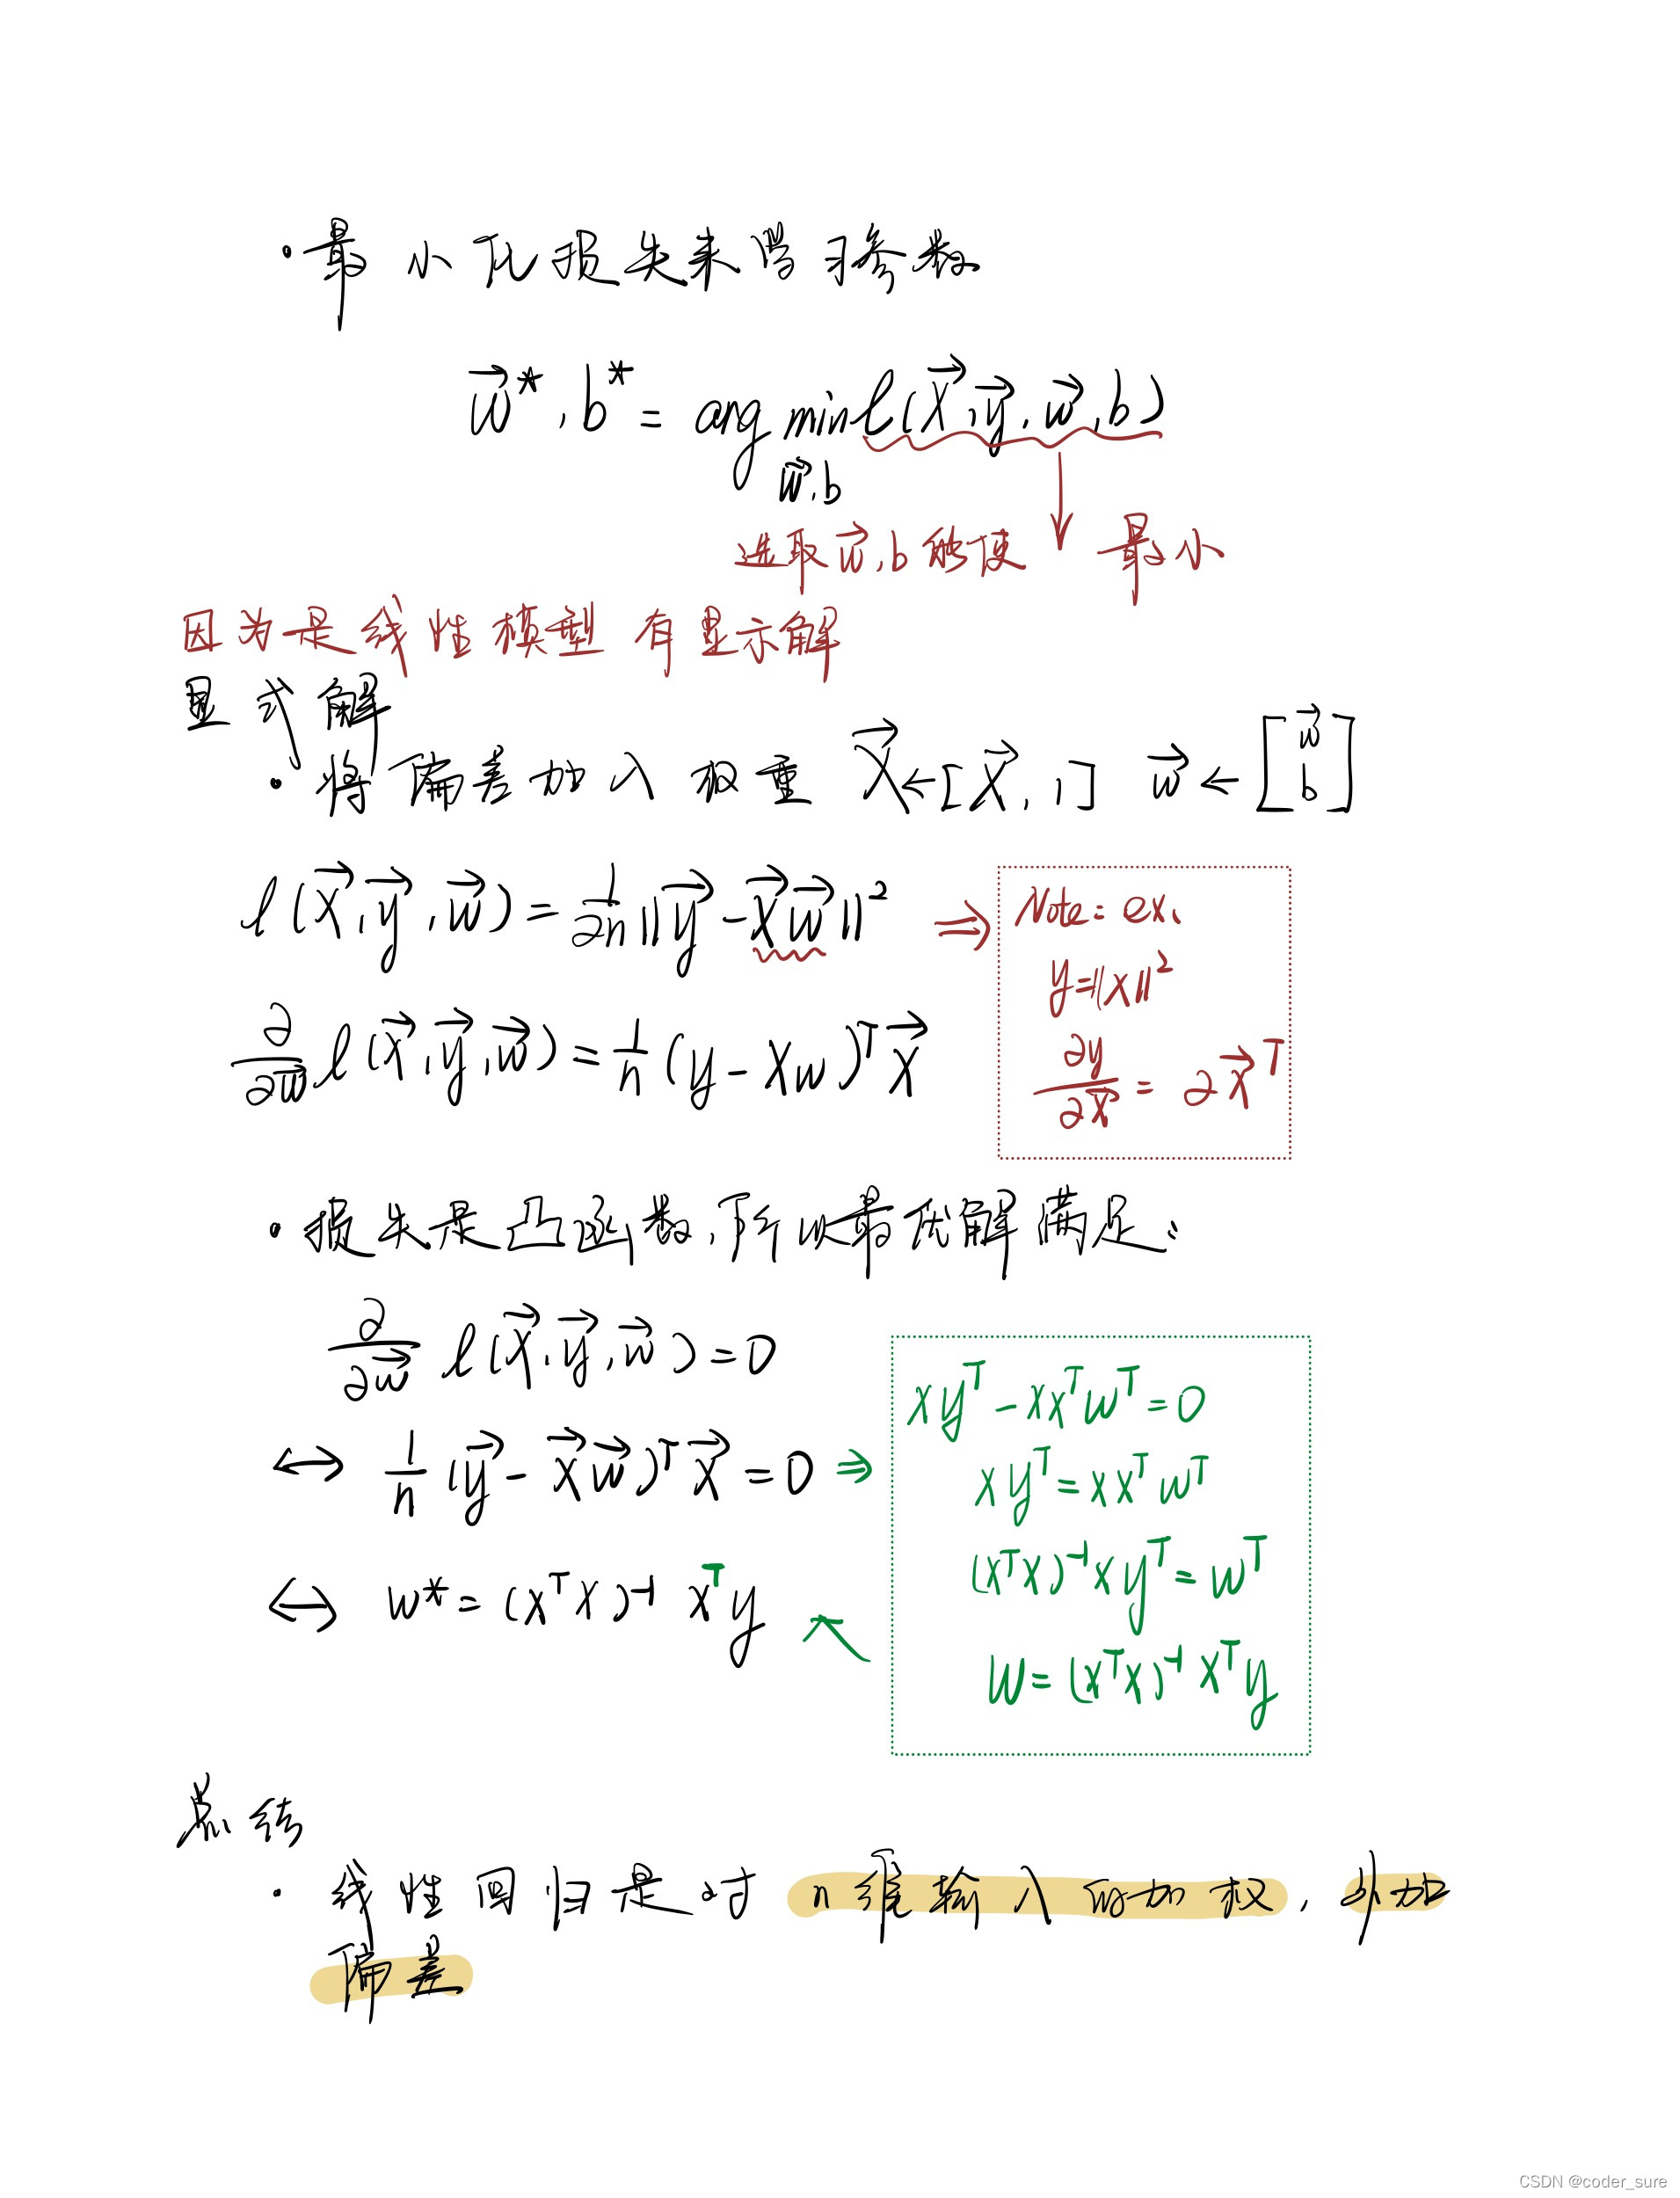 ·最小化损失来学习参数
w⃗*, b* = arg min ℓ(X⃗, y⃗, w⃗, b)
w⃗, b
选取w⃗, b能使 ↓ 最小
因为是线性模型 有显示解
显式解
·将偏差加入权重 X⃗ ← [X⃗, 1] w⃗ ← [w⃗ b]
ℓ(X⃗, y⃗, w⃗) = 1/2n ||y⃗ - X⃗w⃗||² ⇒
Note: ex.
y = ||x||²
∂y/∂x⃗ = 2x⃗ᵀ
∂/∂w⃗ ℓ(X⃗, y⃗, w⃗) = 1/n (y - Xw)ᵀ X⃗
·损失是凸函数,所以最优解满足:
∂/∂w⃗ ℓ(X⃗, y⃗, w⃗) = 0
↔ 1/n (y⃗ - X⃗w⃗)ᵀ X⃗ = 0 ⇒
↔ w* = (XᵀX)⁻¹ Xᵀy
xyᵀ - xxᵀwᵀ = 0
xyᵀ = xxᵀwᵀ
(xᵀx)⁻¹xyᵀ = wᵀ
w = (xᵀx)⁻¹xᵀy
总结
·线性回归是对n维输入的加权,外加
偏差
CSDN @coder_sure